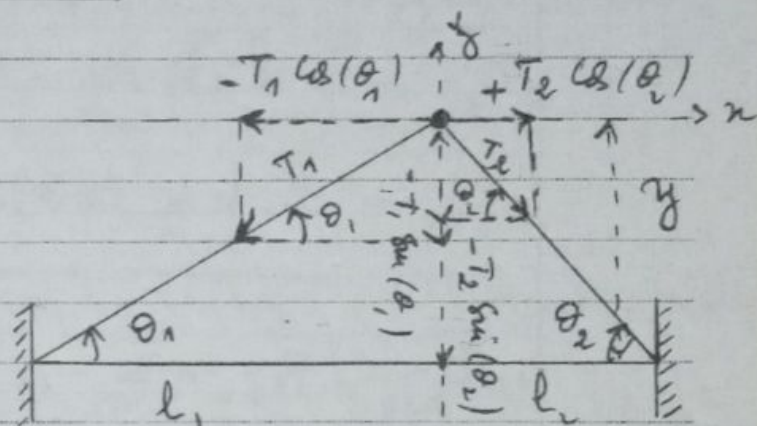 y
-T1 cos(θ1) +T2 cos(θ2)
x
T1 T2
θ1 θ2 y
-T1 sin(θ1)
-T2 sin(θ2)
θ1 θ2
l1 l2